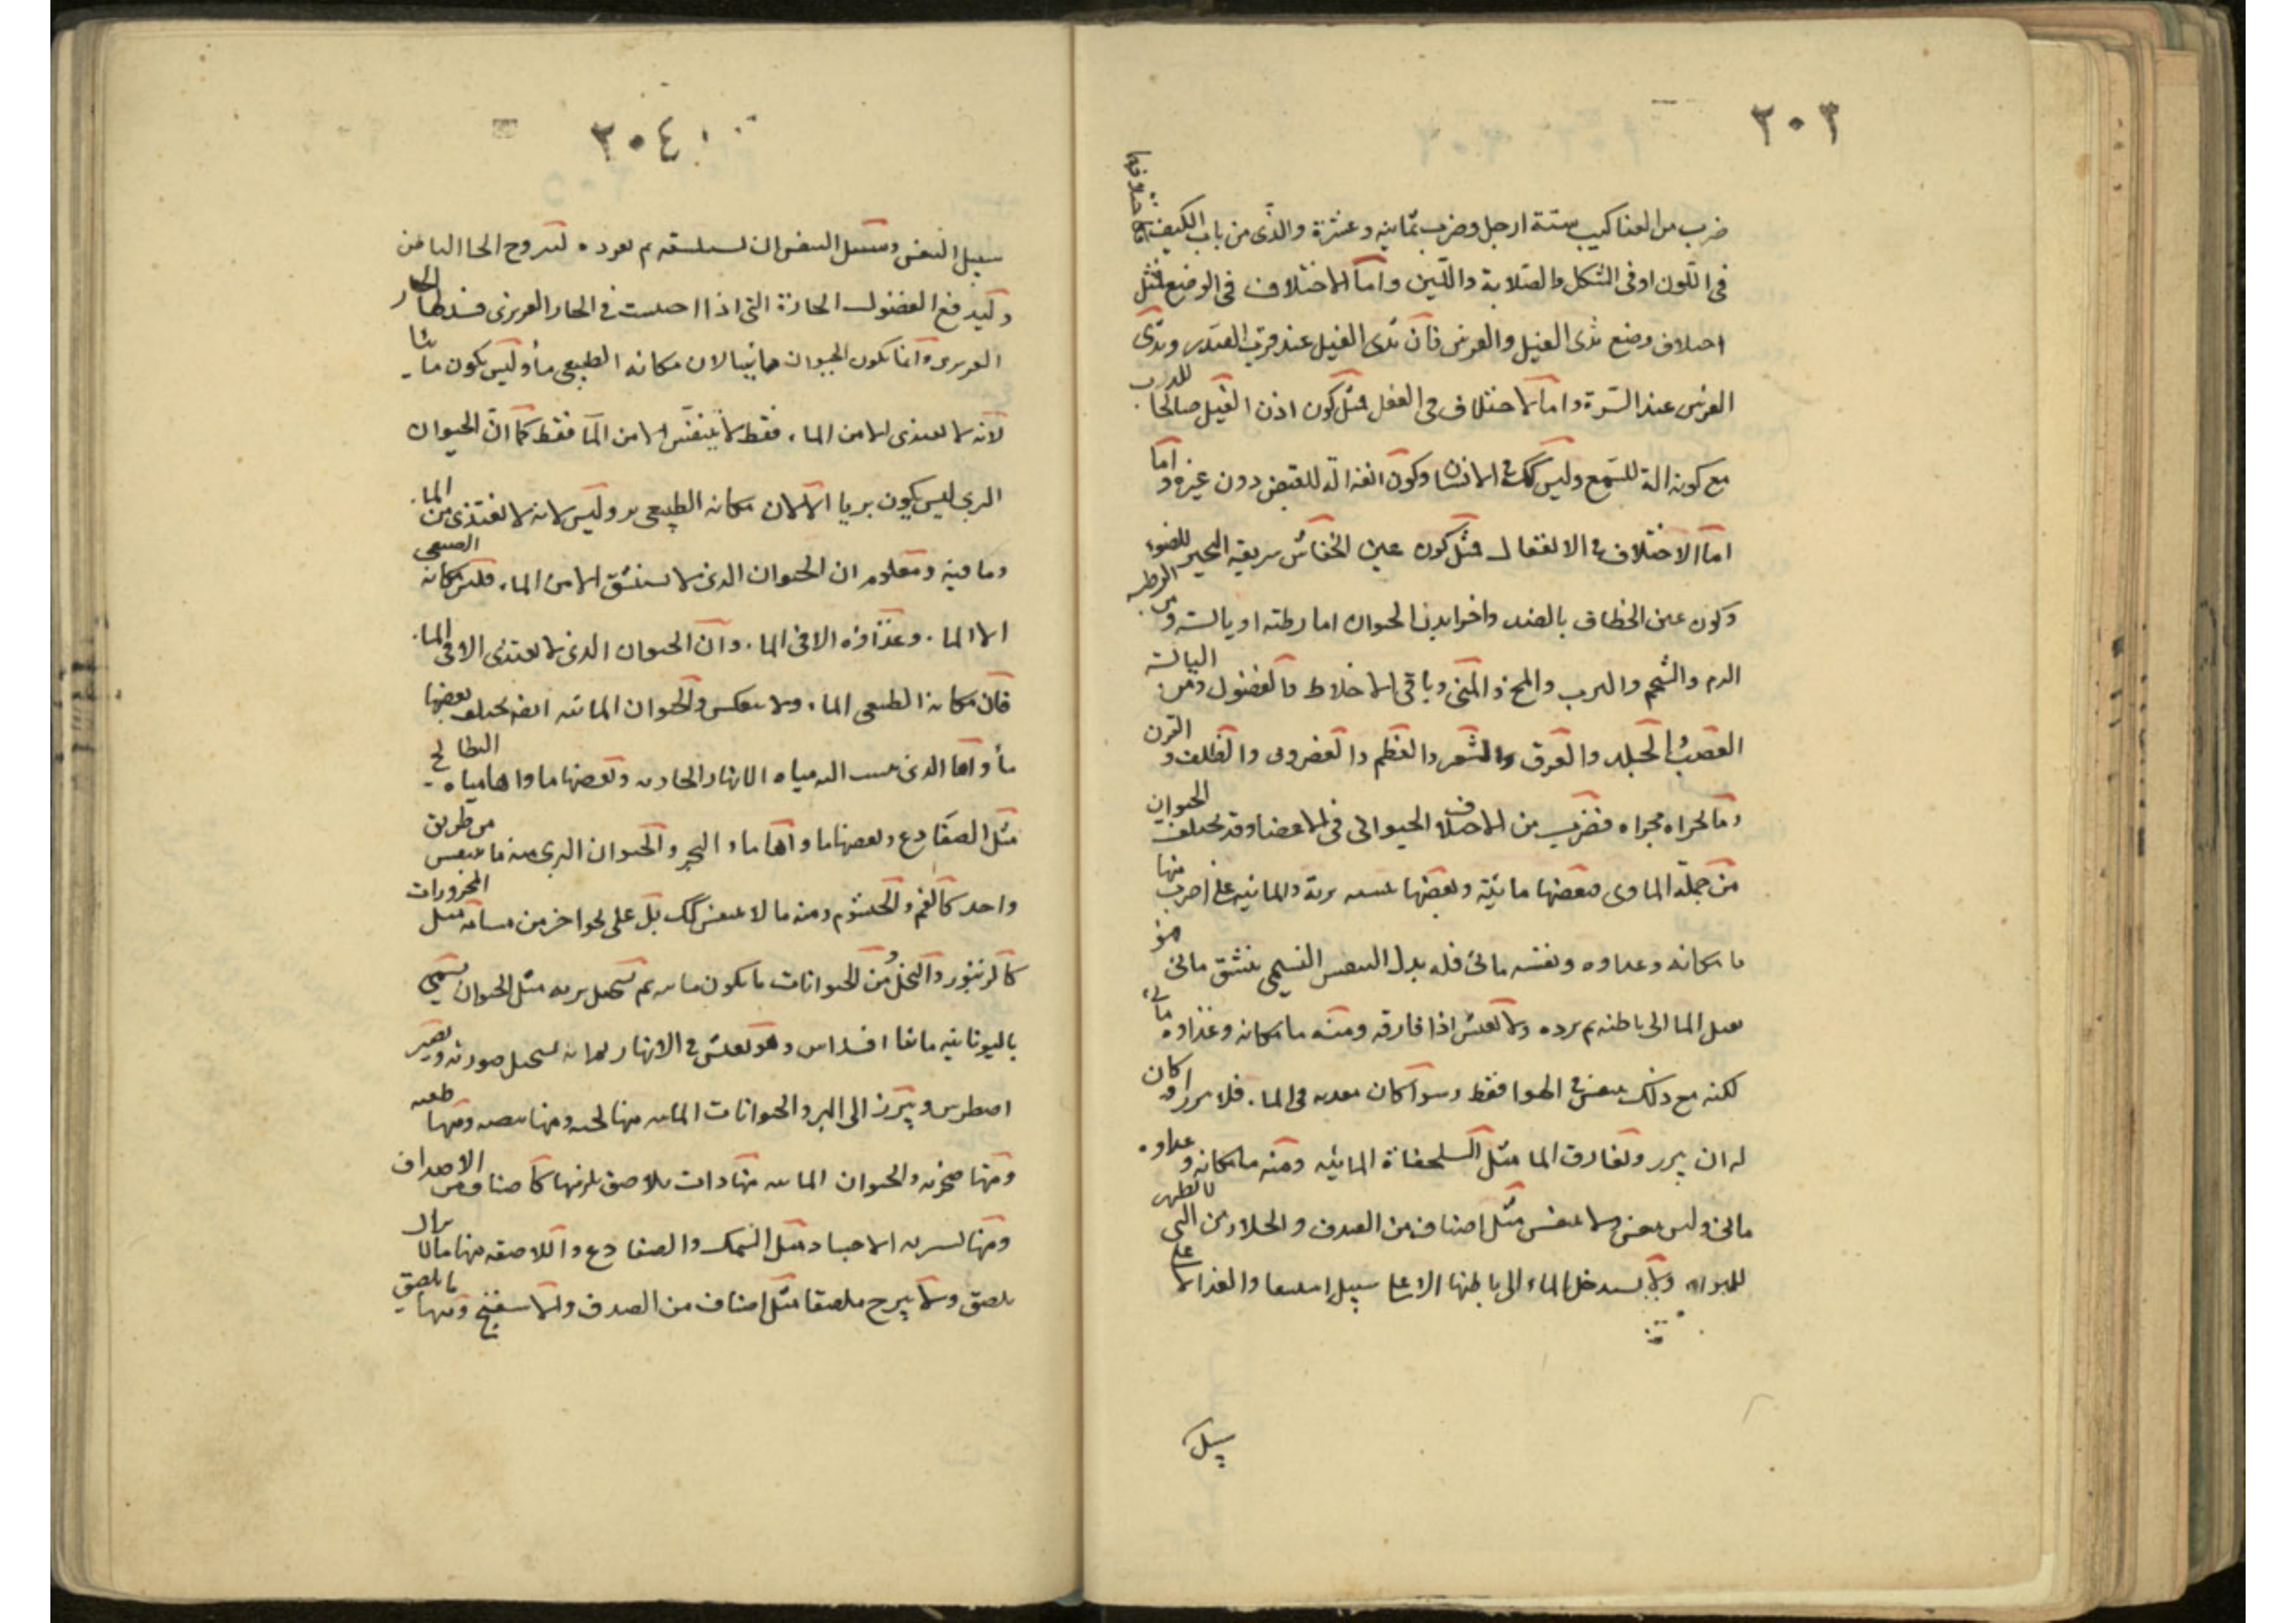 ٢٠٣
ضرب من العناكيب ستة ارجل وضرب ثمانيه وعشرة والذى من باب الكيفية كاختلافها
فى اللون او فى الشكل والصلابة واللين واما الاختلاف فى الوضع فمثل
اختلاف وضع ثدى الفيل والفرس فان ثدى الفيل عند قرب الصدر وثدى
الفرس عند السرة واما الاختلاف فى الفعل مثل كون اذن الفيل صالحا للذب
مع كونه الة للسمع وليس كك فى الانسان وكون انفه الة للقبض دون غيره و اما
اما الاختلاف فى الانفعال مثل كون عين الخفاش سريعة التحير للضوء
وكون عين الخطاف بالضد واخر ابدن الحيوان اما رطبة او يابسة ومن الرطبه
الدم والشحم والثرب والمخ والمنى وباقى الاخلاط والفضول ومن اليابسة
العصب والجلد والعرق والشعر والعظم والغضروف والظلف و القرن
وما يجراه مجراه فضرب من الاختلاف الحيوانى فى الاعضا وقد تختلف الحيوان
من جملة الماوى فبعضها مائية وبعضها برية والمائيه على اضرب منها
ما مكانه وغذاوه ونفسه مائى فله بدل التنفس النسيمى تنشق مائى فهو
يقبل الما الى باطنه ثم يرده ولا يعيش اذا فارقه ومنه ما مكانه وغذاوه مائى
لكنه مع ذلك يتنفس فى الهوا فقط وسوا كان معدنه فى الما فلا يبرز او كان
له ان يبرز ويفارق الما مثل السلحفاة المائيه ومنه ما مكانه و غذاوه
مائى وليس يتنفس ولا يتنفس مثل اصناف من الصدف والحلازن التى لا تظهر
للهواء ولا يستدخل الماء الى باطنها الا على سبيل امتيعا والغذا لا على
سبيل
٢٠٤
سبيل التنفس وسبيل التنفس ان يستنشقه ثم يعوده لتروح الحار الباطن
وليدفع الفضول الحارة التى اذا احصلت فى الحار الغريزى فسد الحار
الغريزى وانما يكون الحيوان مائيا لان مكانه الطبيعى ما وليس يكون مائيا
لانه لا يغتذى الا من الماء فقط لا يتنفس الا من الما فقط كما ان الحيوان
البرى ليس يكون بريا الا لان مكانه الطبيعى بر وليس لانه لا يغتذى من الماء
وما فيه ومعلوم ان الحيوان الذى لا يستنشق الا من الماء فليس مكانه الطبيعى
الا الماء وغذاؤه الا فى الماء وان الحيوان الذى لا يغتذى الا فى الماء
فان مكانه الطبيعى الماء ولا ينعكس والحيوان المائية ايضا تختلف بعضها
مأواها الذى ينسب اليه مياه الانهار الجارية وبعضها ماواها مياه البطائح
مثل الضفادع وبعضها ماواها ماء البحر والحيوان البرى منه ما يتنفس من طريق
واحد كالفم والخيشوم ومنه ما لا يتنفس كك بل على نحو اخر من مسامه مثل المحزوزات
كالزنبور والنحل ومن الحيوانات ما يكون مائيه ثم تستحيل بريه مثل الحيوان يسمى
باليونانيه مانفا افداس وهو يعيش فى الانهار ثم انه يستحيل صورته ويصير
اصطرس ويبرز الى البر والحيوانات المائيه منها لجيه ومنها شطيه ومنها طينيه
ومنها صخريه والحيوان المائيه منها ذات ملاصق يلزمها كاصناف من الاصداف
ومنها متبرية الاجساد مثل السمك والضفادع واللاصقه منها ما لا يزال
يلصق ولا يبرح ملصقا مثل اصناف من الصدف والاسفنج ومنها ما يلصق